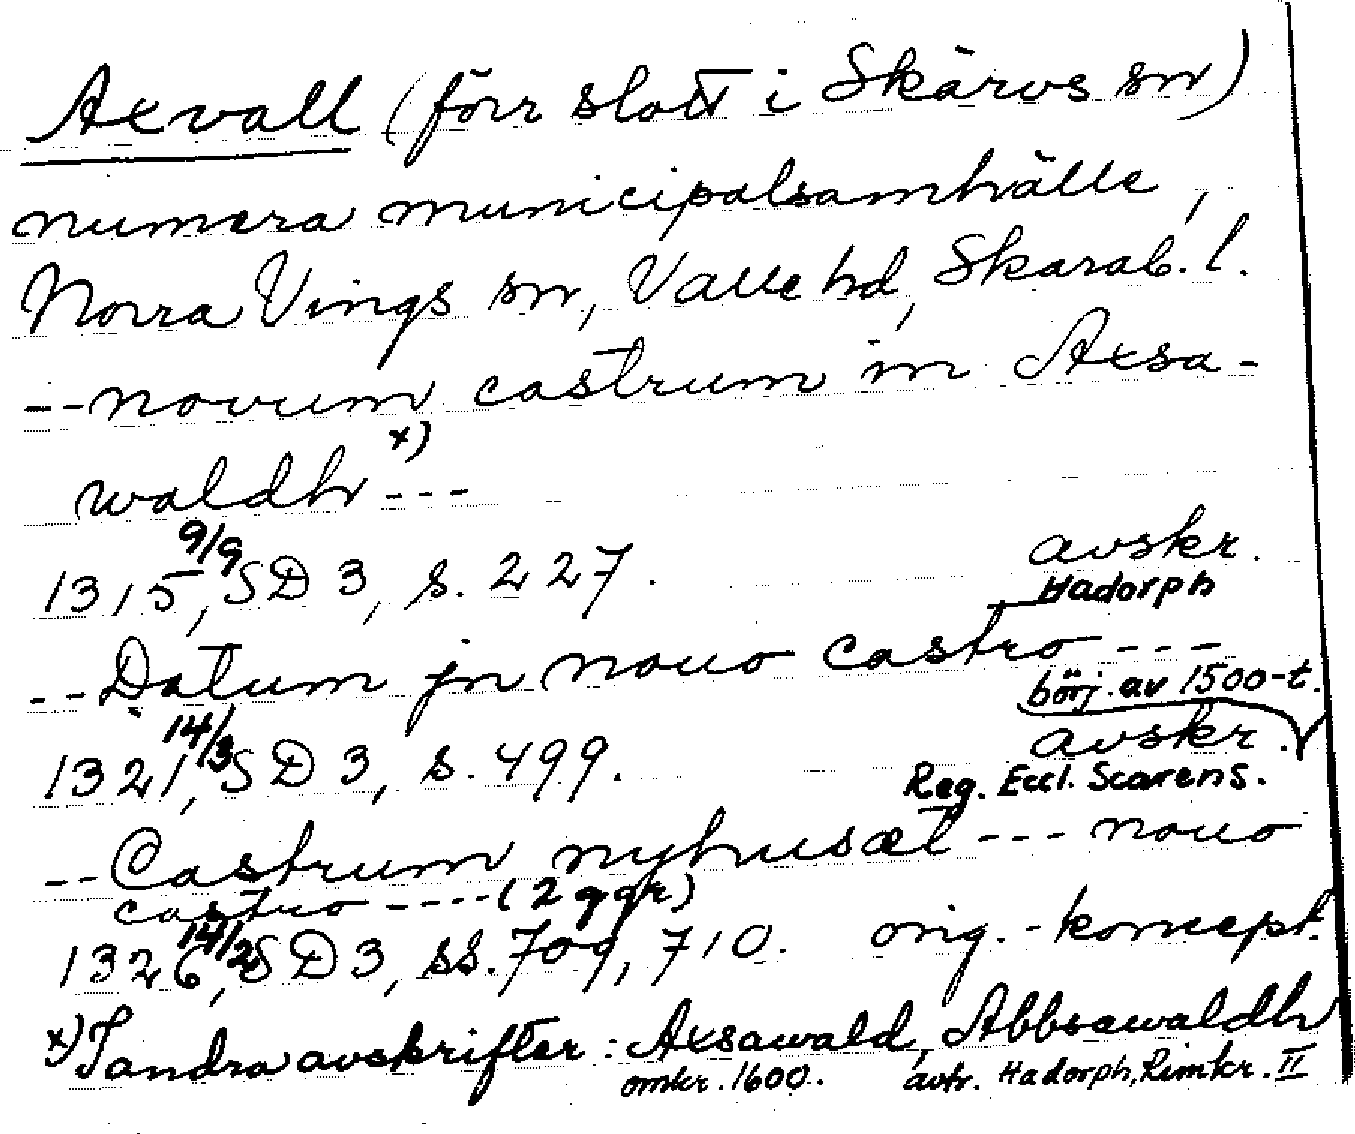 Axvall (förr slott i Skärvs sn)
numera municipalsamhälle,
Norra Vings sn, Valle hd, Skarab. l.
-- novum castrum in Axsa-
waldh x) ---
1315 9/9, SD 3, s. 227. avskr.
Hadorph
-- Datum jn nouo castro ---
börj. av 1500-t.
1321 14/3, SD 3, s. 499. avskr.
Reg. Eccl. Scarens.
-- Castrum nyhusæt --- nouo
castro ---- (2 ggr)
1326 14/2, SD 3, ss. 709, 710. orig.-koncept.
x) I andra avskrifter: Axsawald, Abbsawaldh
omkr. 1600. avtr. Hadorph, Rimkr. II